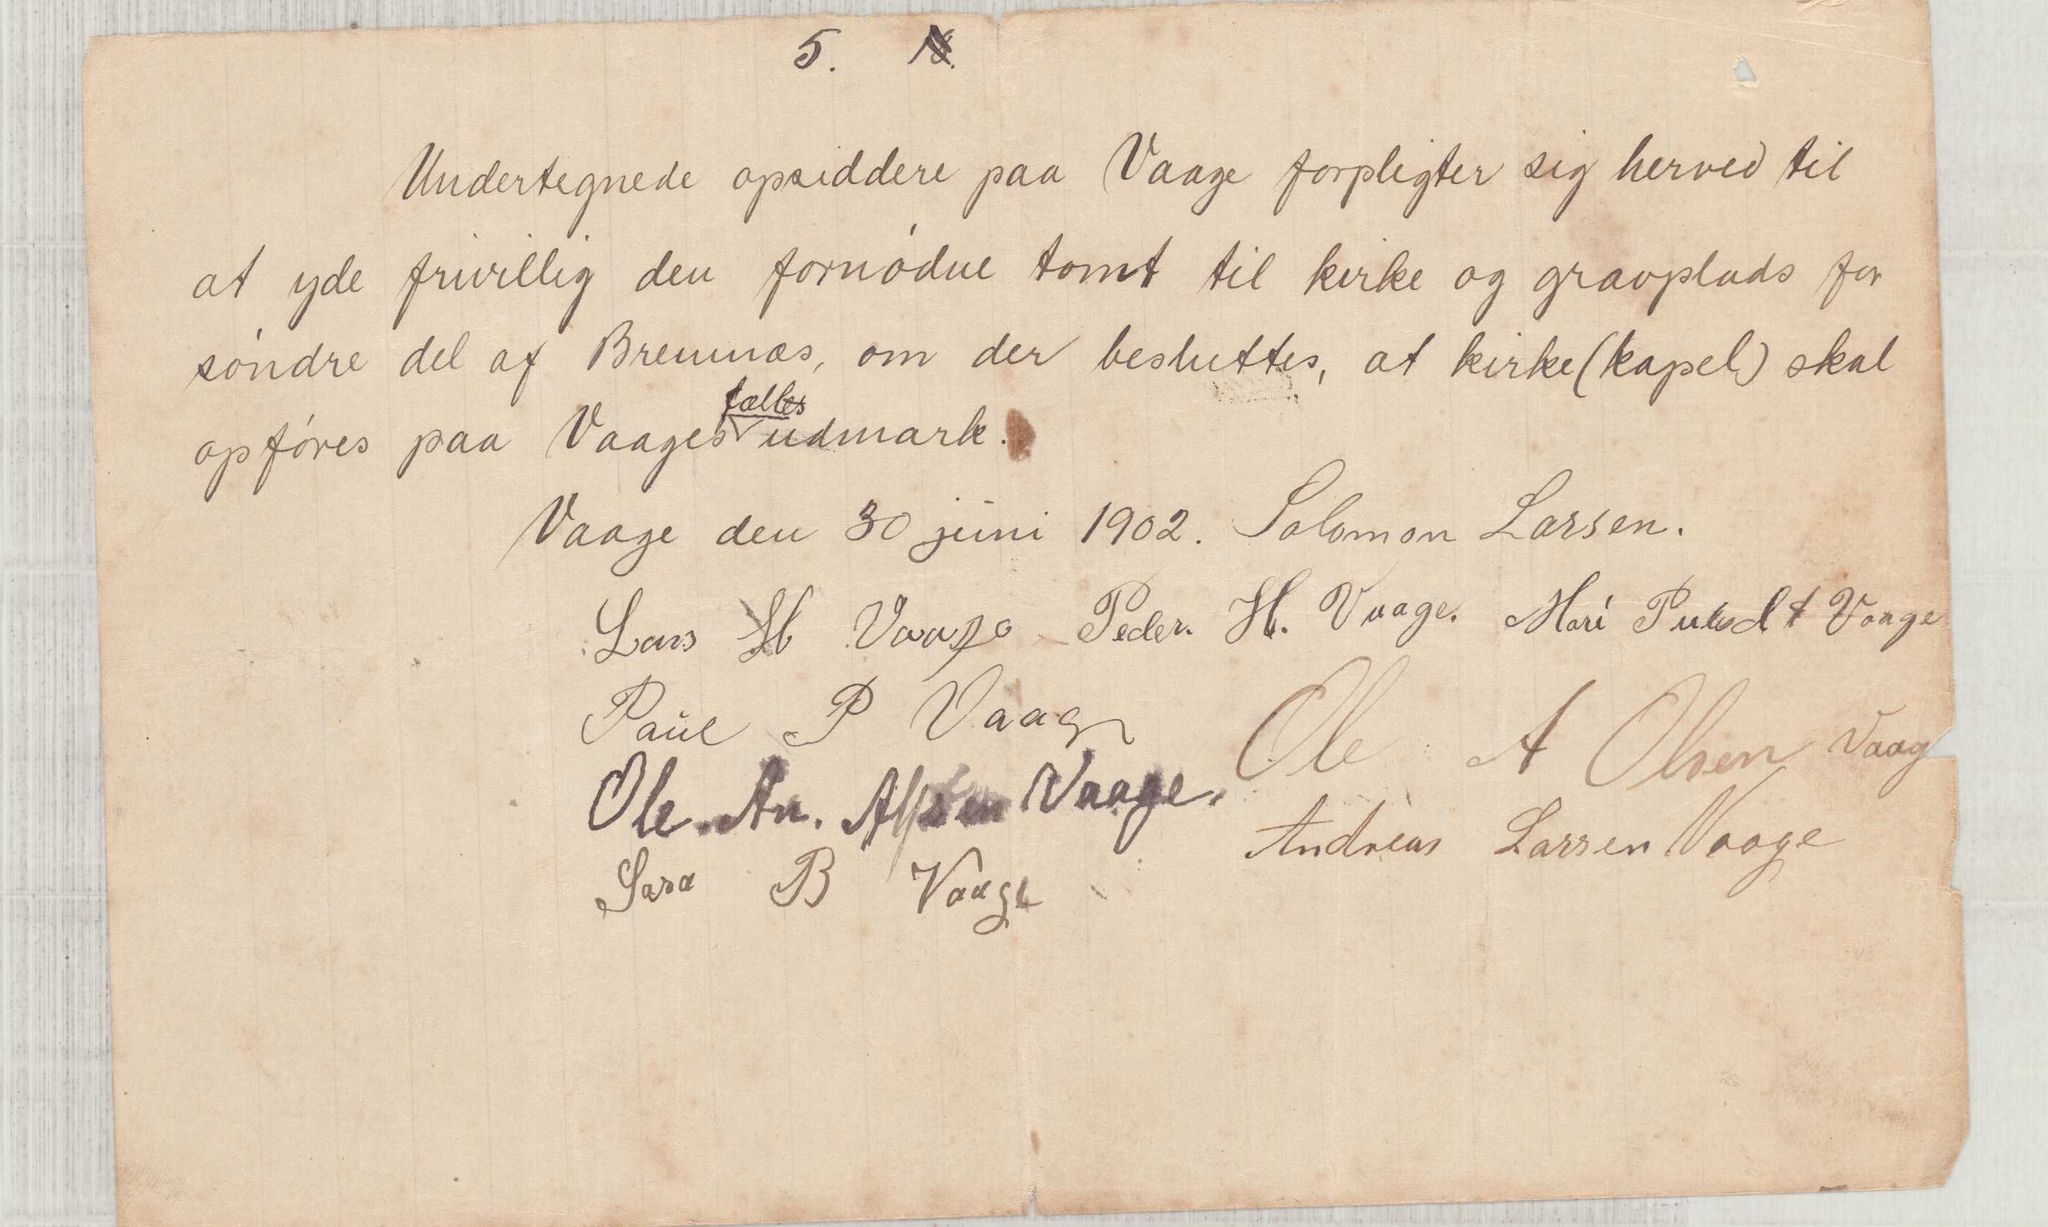 5.
Undertegnede opsiddere paa Vaage forpligter sig herved til
at yde frivillig den fornódne tomt til kirke og gravplads for
sóndre del af Bremnæs, om der besluttes, at kirke (kapel) skal
opfóres paa Vaages fælles udmark.
Vaage den 30 juni 1902. Solomon Larsen.
Lars H Vaage Peder. H. Vaage. Mari Vaage
Paul P Vaage Ole A Olsen Vaag
Ole. An. Vaage.
Andreas Larsen Vaage
Sara B Vaage